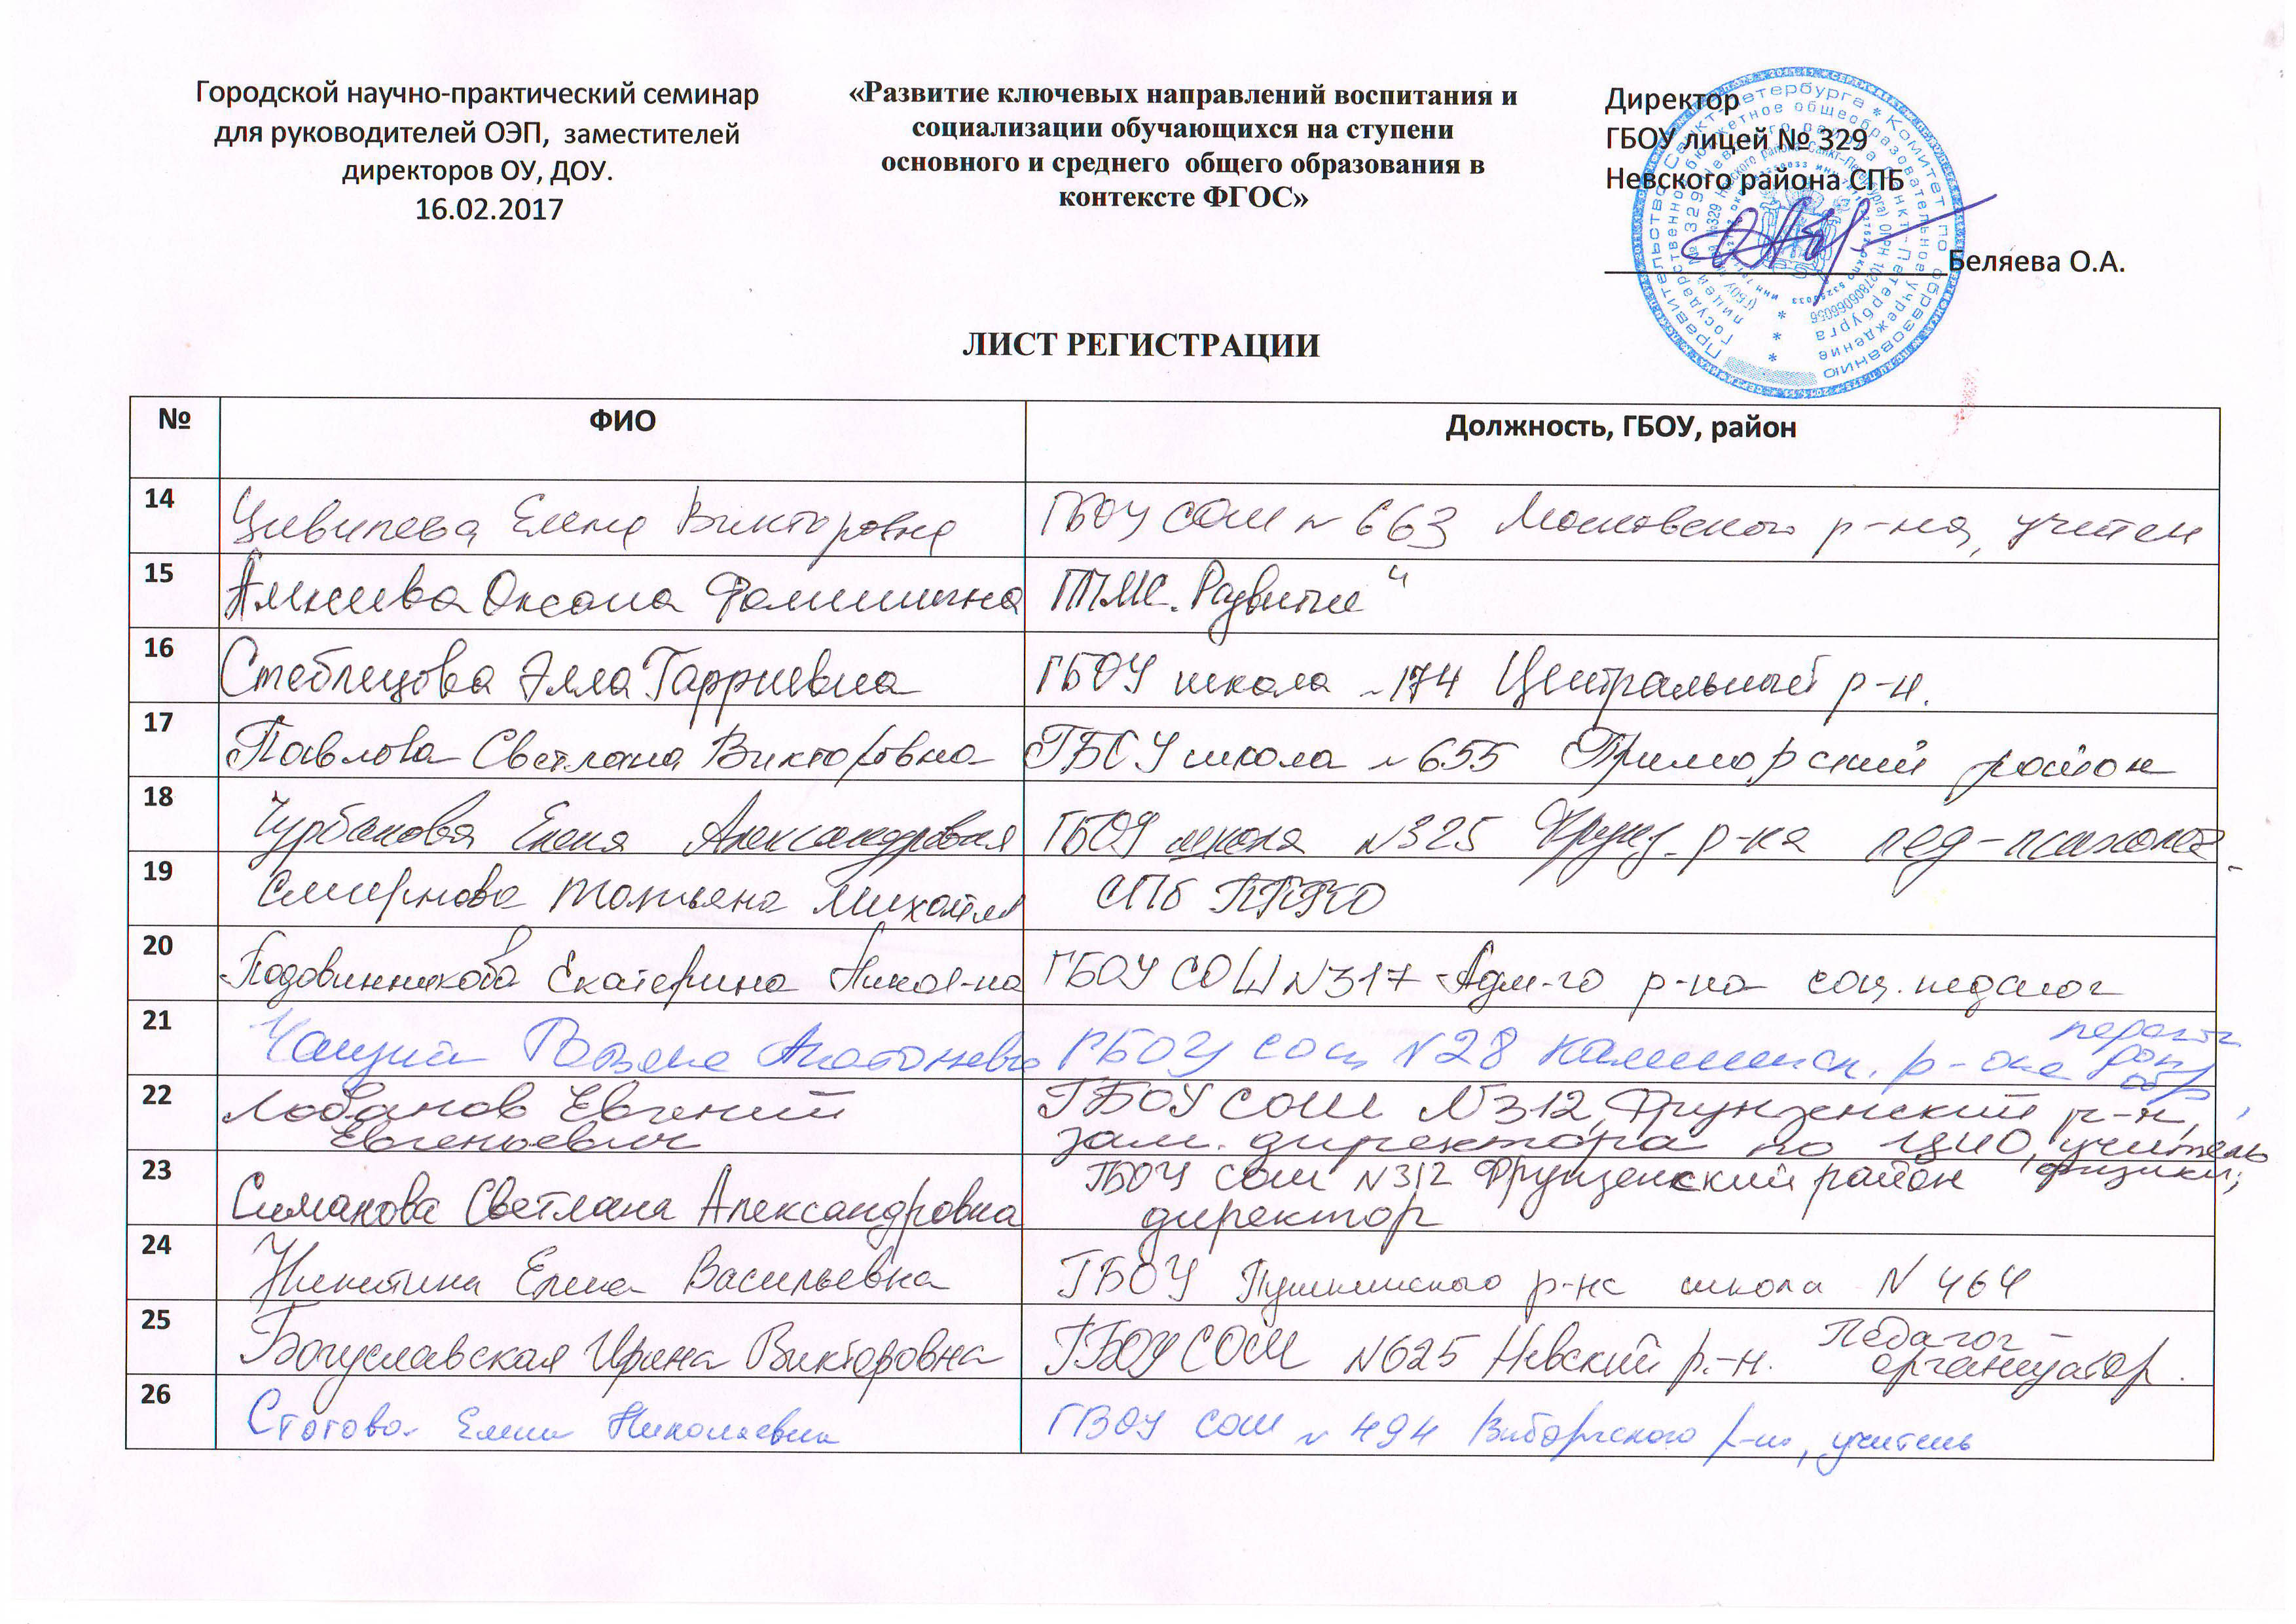 Городской научно-практический семинар
для руководителей ОЭП, заместителей
директоров ОУ, ДОУ.
16.02.2017
«Развитие ключевых направлений воспитания и
социализации обучающихся на ступени
основного и среднего общего образования в
контексте ФГОС»
Директор
ГБОУ лицей № 329
Невского района СПБ
Беляева О.А.
ЛИСТ РЕГИСТРАЦИИ
№ ФИО Должность, ГБОУ, район
14 Елена Викторовна ГБОУ СОШ N 663 Московского р-на, учитель
15 Оксана ППМС „Развитие“
16 Стеблецова Элла Гарриевна ГБОУ школа N 174 Центральный р-н.
17 Павлова Светлана Викторовна ГБОУ школа N 655 Приморский район
18 Чурбанова Елена Александровна ГБОУ школа N325 Фрунз. р-на пед-психолог
19 Смирнова Татьяна Михайл СПб
20 Подовинникова Екатерина Никол-на ГБОУ СОШ N317 Адм-го р-на соц. педагог
21 ГБОУ сош N28 Калининск. р-она педагог
доп
обр
22 Лобанов Евгений
Евгеньевич
ГБОУ СОШ N312, Фрунзенский р-н,
зам. директора по ЦИО, учитель
физики;
23 Симакова Светлана Александровна ГБОУ СОШ N312 Фрунзенский район
директор
24 Никитина Елена Васильевна ГБОУ Пушкинского р-на школа N 464
25 Богуславская Ирина Викторовна ГБОУ СОШ N625 Невский р.-н. Педагог-
организатор.
26 Стогова Елена Николаевна ГБОУ СОШ N 494 Выборгского р-на, учитель